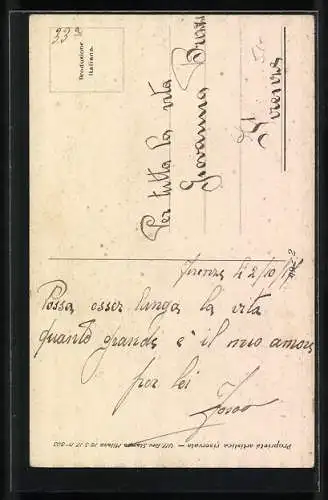 33a
Produzione
Italiana.
Per tutta la vita
Giovanna
Firenze
Firenze li 2/10/
Possa esser lunga la vita
quanto grande è il mio amore
per lei
Proprietà artistica riservata - Uff. Rev. Stampa Milano